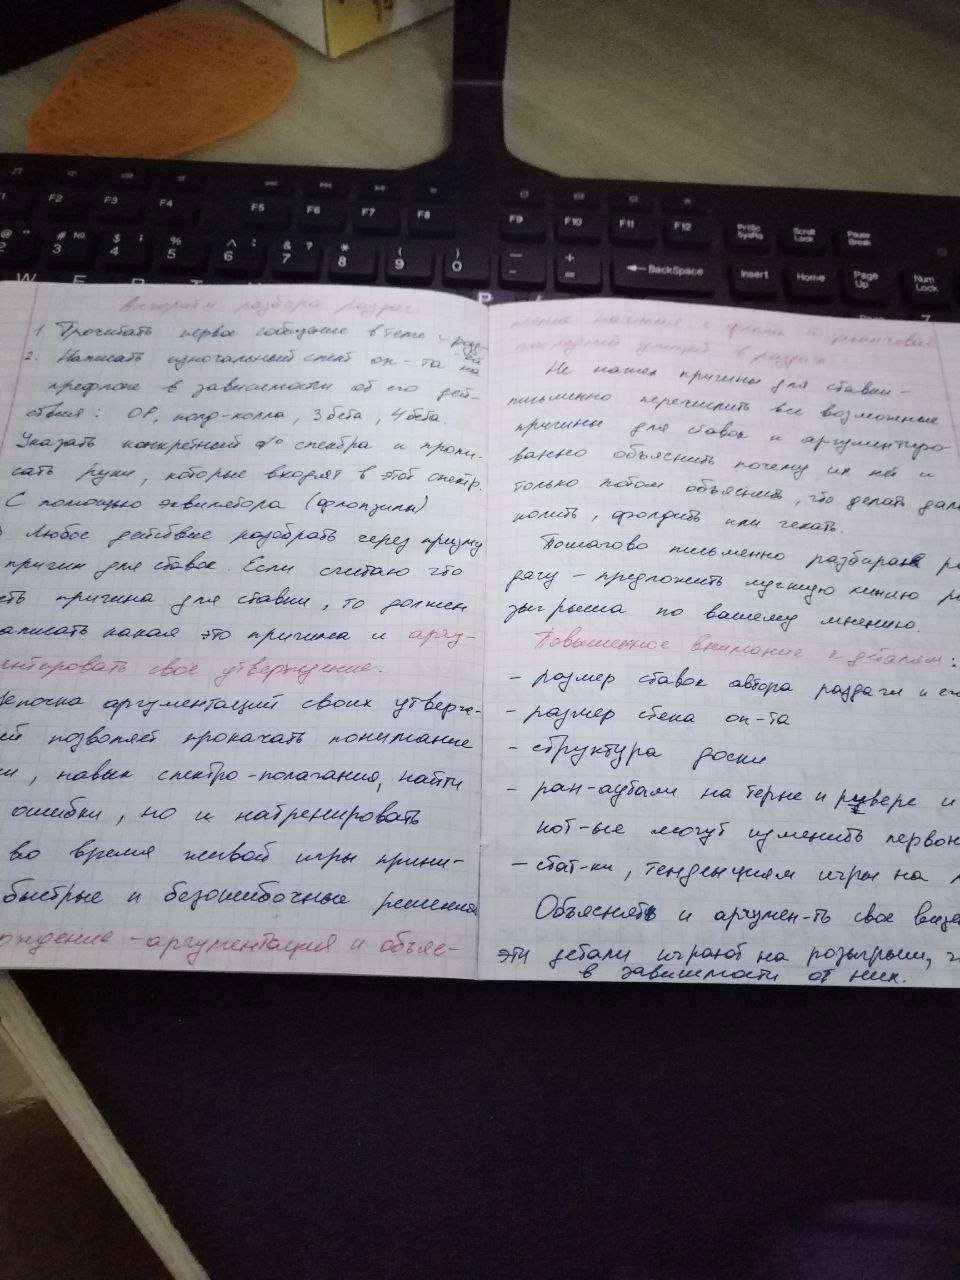 F2
F3
F4
F5
F6
F7
F8
F9
F10
F11
F12
PrtSc
SysRq
Scroll
Lock
Pause
Break
@ "
2
# №
3
$ ;
4
%
5
^ :
6
& ?
7
*
8
(
9
)
0
-
+
=
BackSpace
Insert
Home
Page
Up
Num
Lock
W
P
7
Алгоритм разбора раздач
1 Прочитать первое сообщение в теме с
2. Написать изначальный спект оп-та на
префлопе в зависимости от его дей-
ствия: ОР, колд-колла, 3 бета, 4 бета.
Указать конкретный % спектра и пропи-
сать руки, которые входят в этот спектр.
С помощью эквилятора (флопзилы)
Любое действие разобрать через призму
причин для ставок. Если считаю что
сть причина для ставки, то должен
аписать какая это причина и аргу-
ентировать свое утверждение.
епочка аргументаций своих утвержде-
ий позволяет прокачать понимание
ы, навык спектро-полагания, найти
ошибки, но и натренировать
во время живой игры прини-
быстрые и безошибочные решения
рждение - аргументация и объяс-
нение начиная с флопа и заканчивая
последней улицей в раздаче
Не нашел причины для ставки -
письменно перечислить все возможные
причины для ставок и аргументиро-
ванно объяснить почему их нет и
только потом объяснить, что делать дал
колить, фолдить или чекать.
Пошагово письменно разбирая ра
дачу - предложить лучшую линию ро
зыгрыша по вашему мнению.
Повышенное внимание к деталям:
- размер ставок автора раздачи и его
- размер стека оп-та
- структура доски
- ран-ауты на терне и ривере и
кот-ые могут изменить первон
- стат-ки, тенденциям игры на
Объяснять и аргумен-ть свое виде
эти детали играют на розыгрыш, ч
в зависимости от них.